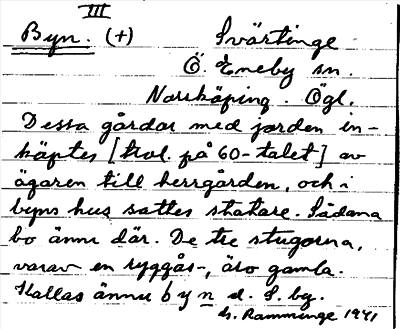 III
Byn. (+) Svärtinge
Ö. Eneby sn.
Norrköping. Ögl.
Dessa gårdar med jorden in-
köptes [trol. på 60-talet] av
ägaren till herrgården, och i
byns hus sattes statare. Sådana
bo ännu där. De tre stugorna,
varav en ryggås-, äro gamla.
Kallas ännu byn d. S. by.
Ramminge 1941